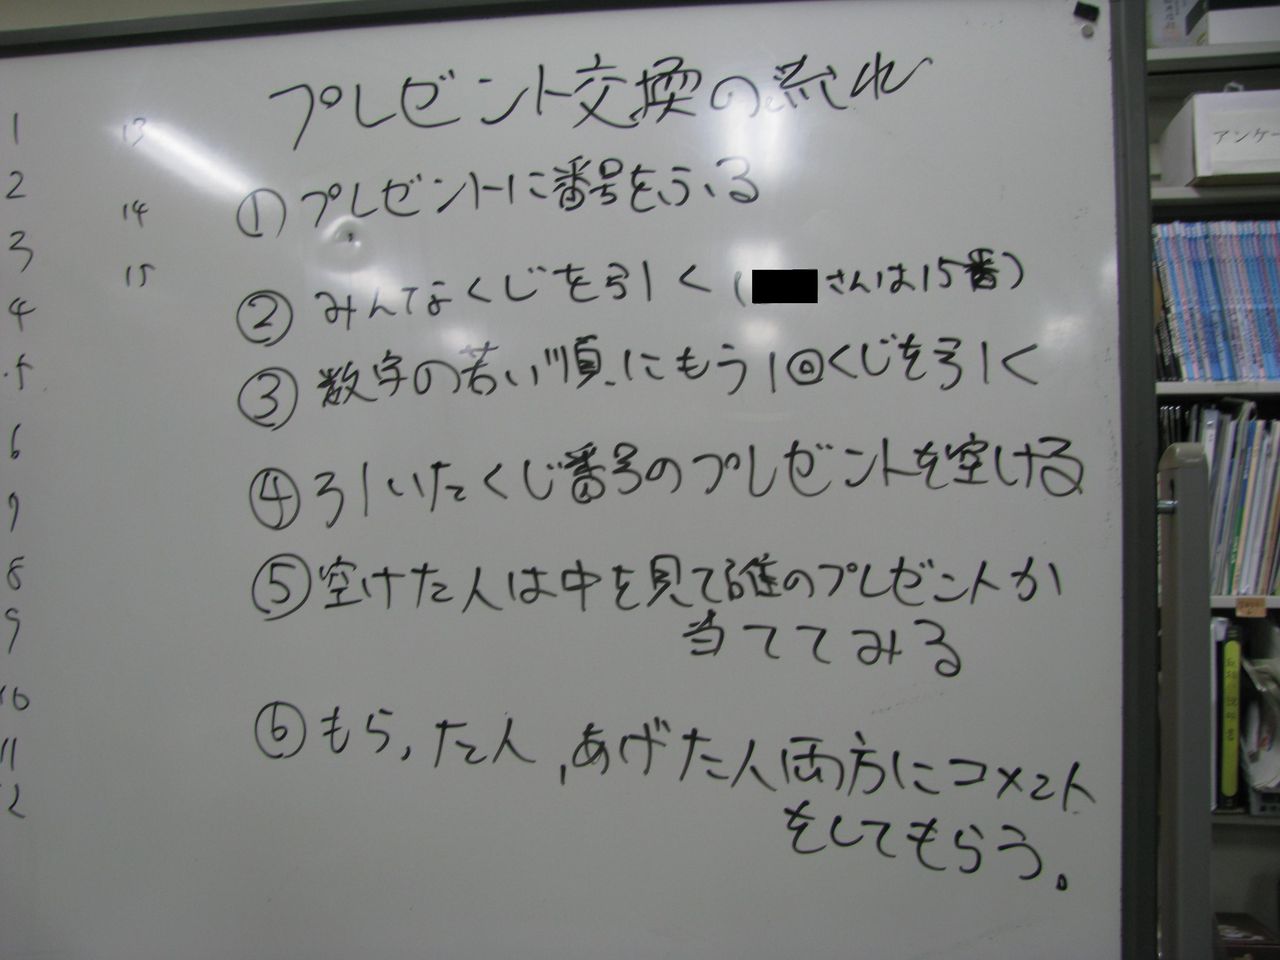 プレゼント交換の流れ
①プレゼントに番号をふる
②みんなくじを引く(さんは15番)
③数字の若い順にもう1回くじを引く
④引いたくじ番号のプレゼントを空ける
⑤空けた人は中を見て誰のプレゼントか
当ててみる
⑥もらった人,あげた人両方にコメント
をしてもらう。
1
2
3
4
5
6
7
8
9
10
11
12
13
14
15
アンケー